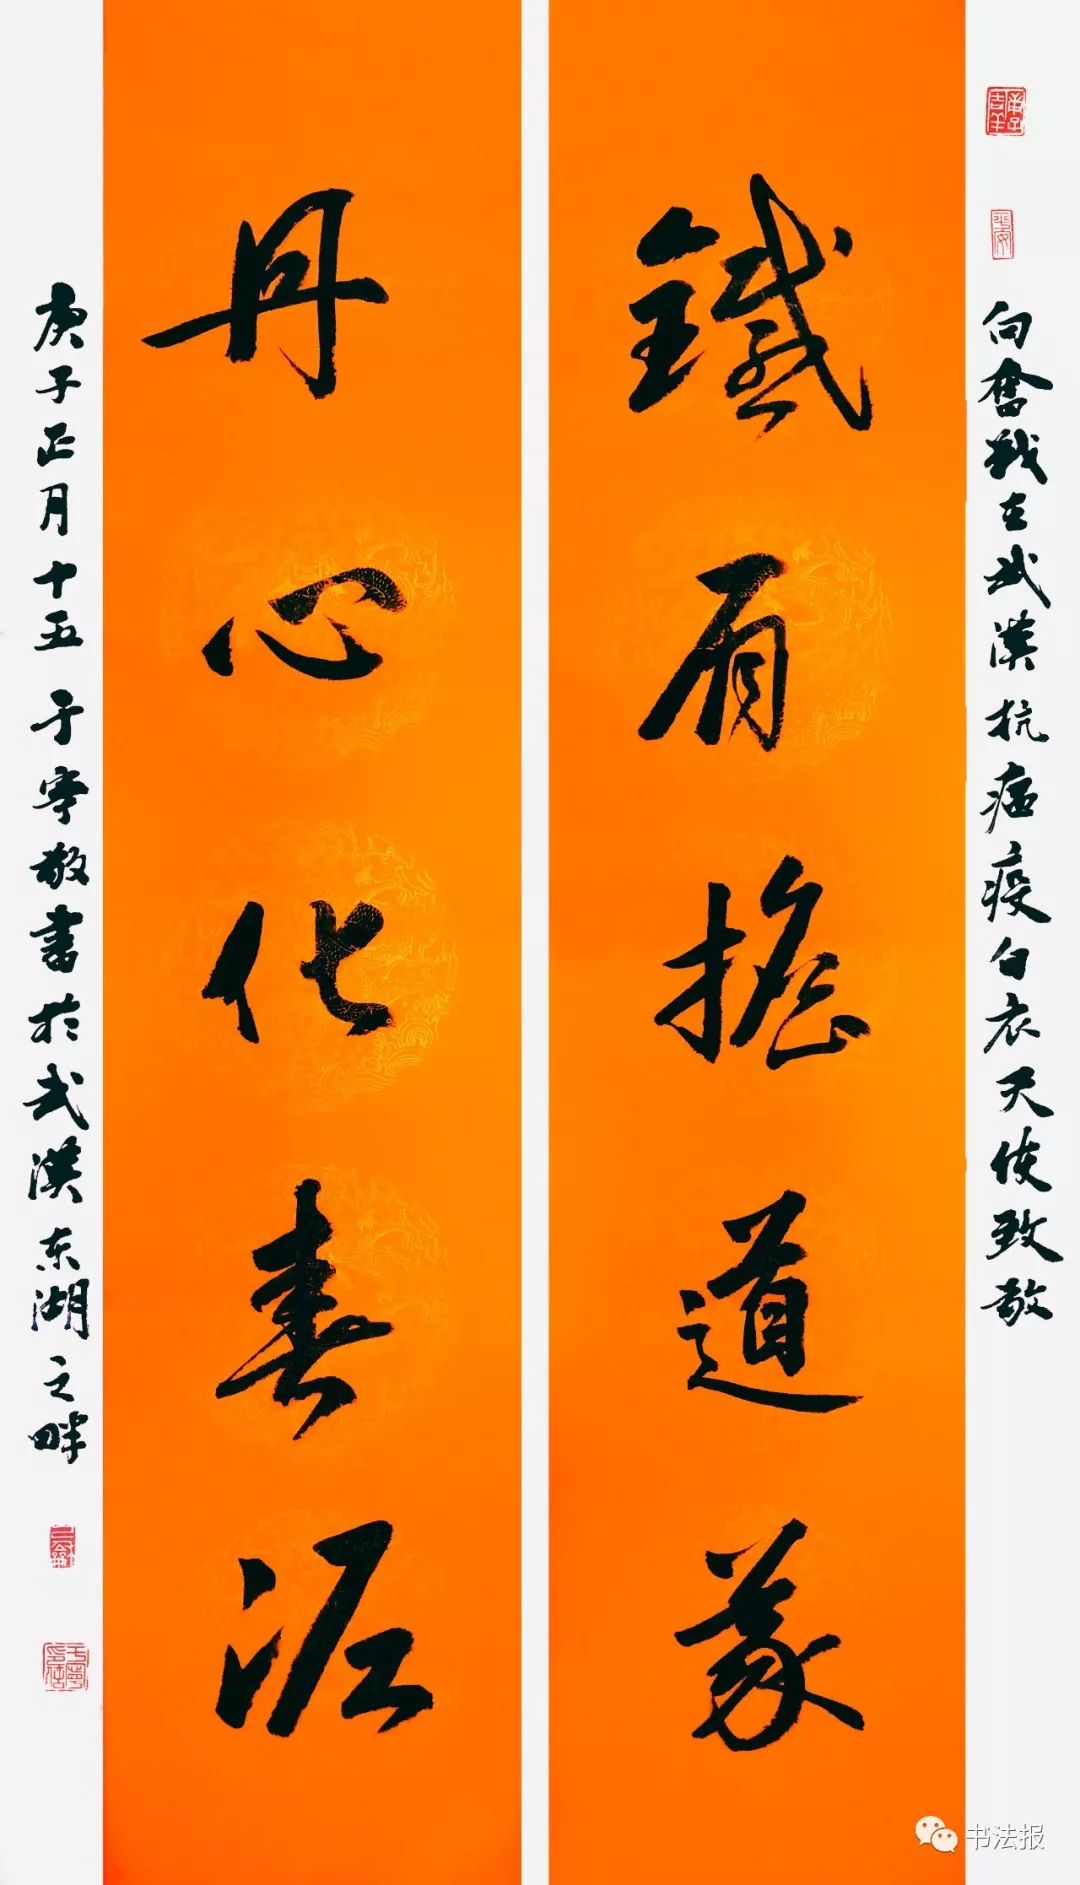 向奋战在武漢抗瘟疫白衣天使致敬
鐵肩擔道義
丹心化春泥
庚子正月十五于寧敬書於武漢东湖之畔
平安
书法报